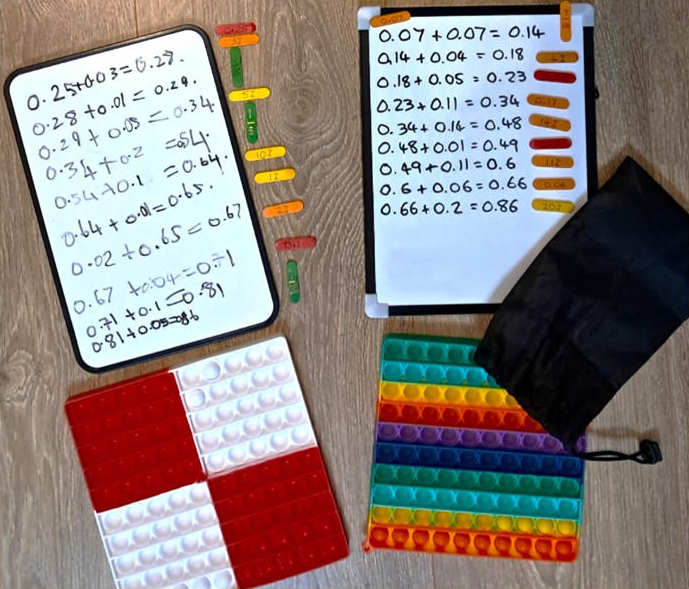 0.25+0.03=0.28.
0.28+0.01= 0.29.
0.29+0.05=0.34.
0.34+0.2 =54.
0.54+0.1 =0.64.
0.64+0.01=0.65.
0.02+0.65=0.67
0.67 +0.04=0.71
0.71+0.1=0.81
0.81+0.05=86
5%
10%
1%
2%
0.07
0.07 + 0.07 = 0.14
0.14 + 0.04 = 0.18
0.18 + 0.05 = 0.23
0.23 + 0.11 = 0.34
0.34 + 0.14 = 0.48
0.48 + 0.01 = 0.49
0.49 + 0.11 = 0.6
0.6 + 0.06 = 0.66
0.66 + 0.2 = 0.86
0.11
11%
0.06
20%